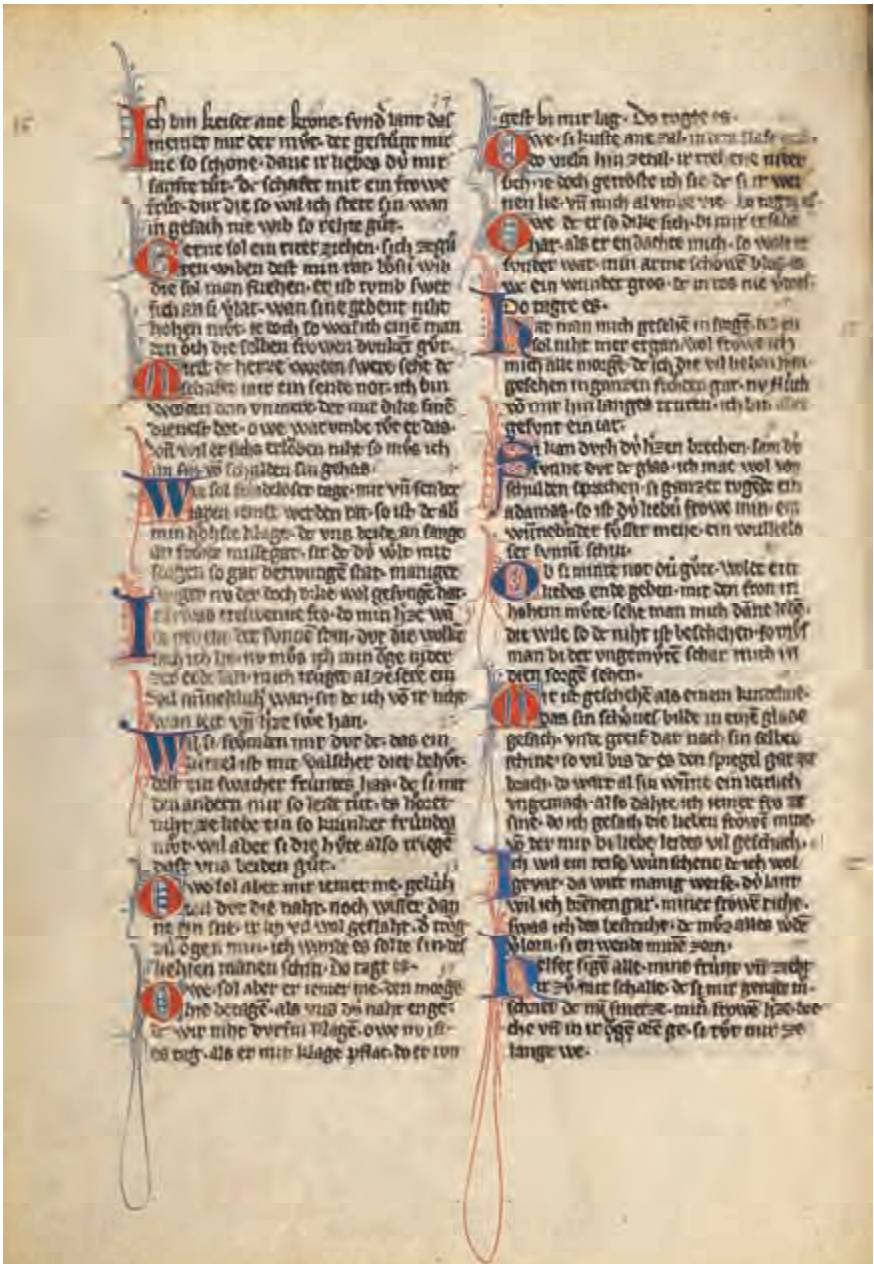 Ich bin keiser ane krone· sund̄ lant das
meinet mir der mv̊t· der gestůnt mir
nie so schone· danc ir liebes dv̍ mir
sanfte tůt· dc schaffet mir ein frowe
frůt· dur die so wil ich stete sin· wan
in gesach nie wib so rehte gůt·
Gerne sol ein riter ziehen· sich ze gů
ten wiben dest min rat· bősú wib
die sol man fliehen· er ist tumb swer
sich an si v̍lat· wan sine gebent niht
hohen můt· ie doch so weis ich einē man
den och die selben frowen dunkēt gůt·
Mirst dc herze worden swere seht dc
schaffet mir ein sende not· ich bin
worden dem vnmere· der mir dike sinē
dienest bot· owe war vmbe tůt er das·
vn̄ wil er sichs erlőben niht so můs ich
im sin vō schulden sin gehas·
Wie sol frőideloser tage· mir vn̄ sender
iaren iemer werden rat· so ist dc als
min hőhste klage·
singen so gar betwungē stat· maniger
singet nv der doch dike wol gesungē hat·
do min h̍ze wā
de nebent der sunne stan· dur die wolkē
sach ich ho· nv můs ich min őge nider
zer erde lan· mich trůget al ze sere ein
vil minneklich wan· sit dc ich vō ir niht
wan leit vn̄ h̍ze swe han·
Wil si frőmden mir dur dc· das ein
lúzzel ist mit valscher diet behůt·
dest ein swacher frúndes has· dc si mit
den andern mir so leide tůt· es hőret
niht ze liebe ein so kranker frúndes
můt· wil aber si die hůte also triegē
dast vns beiden gůt·
Owe sol aber mir iemer me· gelúh
ten dur die naht· noch wisser dan
ne ein sne· ir lip vil wol geslaht· d̄ trog
dú őgen min· ich wande es solde sin· des
liehten manen schin· do tagt es·
Owe sol aber er iemer me· den morgē
hie betagē· als vns dv̍ naht enge·
dc wir niht durfin klagē· owe nv ist
es tag· als er mit klage pflac· do er iun
gest bi mir lag· Do tagte es·
Owe· si kuste ane zal· in dem slafe mich·
do vielē hin ze tal· ir trehene nider
sich· ie doch getrőste ich sie· dc si ir wei
nen lie· vn̄ mich al vmbe vie· Do tagte es·
Owe· dc er so dike sich· bi mir ersehē
hat· als er endachte mich· so wolt er
sunder wat· min arme schowē blos· es
we ein wunder gros· dc in des nie v̍dros·
Do tagte es·
Hat man mich gesehē in sorgē· des en
sol niht mer ergan· wol frowe ich
mich alle morgē· dc ich die vil lieben han·
gesehen in ganzen frőiden gar· nv fliuch
vō mir hin langes truren· ich bin aber
gesunt ein iar·
Si kan durh dv̍ h̍zen brechen· sam dv̍
sunne dur dc glas· ich mac wol von
schulden sprechen· si ganzer tugēde ein
adamas· so ist dv̍ liebú frowe min· ein
wūnebernder sůsser meie· ein wulkelo
ser sunnē schin·
Ob si minte not dú gůte· wolte ein
liebes ende geben· mit den fron in
hohem můte· sehe man mich dāne lebē·
die wile so dc niht ist beschehen· so můs
man bi der vngemůten schar mich in
dien sorgē sehen·
Mir ist geschehē als einem kindeline·
das sin schőnes bilde in einē glase
gesach· vnde greif dar nach sin selbes
schine· so vil bis dc es den spiegel gar zer
brach· do wart al sin wūne ein leitlich
vngemach· also dahte ich iemer fro ze
sine· do ich gesach die lieben frowē mine·
vō der mir bi liebe leides vil geschach·
Ich wil ein reise wúnschent dc ich wol
gevar· da wirt manig weise· dv̍ lant
wil ich brēnen gar· miner frowē riche·
swas ich des bestriche· dc můs alles w̍dē
v̍lorn· si en wende minē zorn·
Helfet sigē alle· mine frúnt vn̄ zieht
ir zů mit schalle· dc si mir genade tů·
schriet dc mī smerze· minr frowē h̍ze· bre
che vn̄ in ir őgē orē ge· si tůt mir ze
lange we·